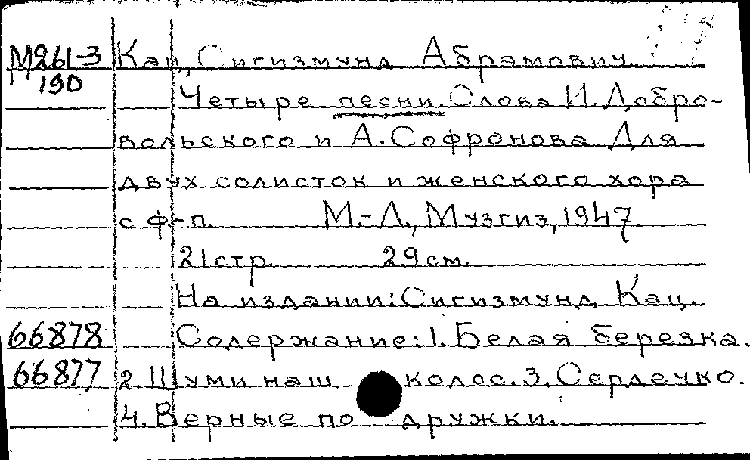 М261-3 Кац, Сигизмунд Абрамович.
190
Четыре песни. Слова И. Добро-
вольского и А. Софронова Для
двух солисток и женского хора
с ф-п. М.-Л., Музгиз, 1947.
21 стр. 29 см.
На издании: Сигизмунд Кац.
66878 Содержание: 1. Белая березка.
66877 2. Шуми наш колос. 3. Сердечко.
4. Верные подружки.